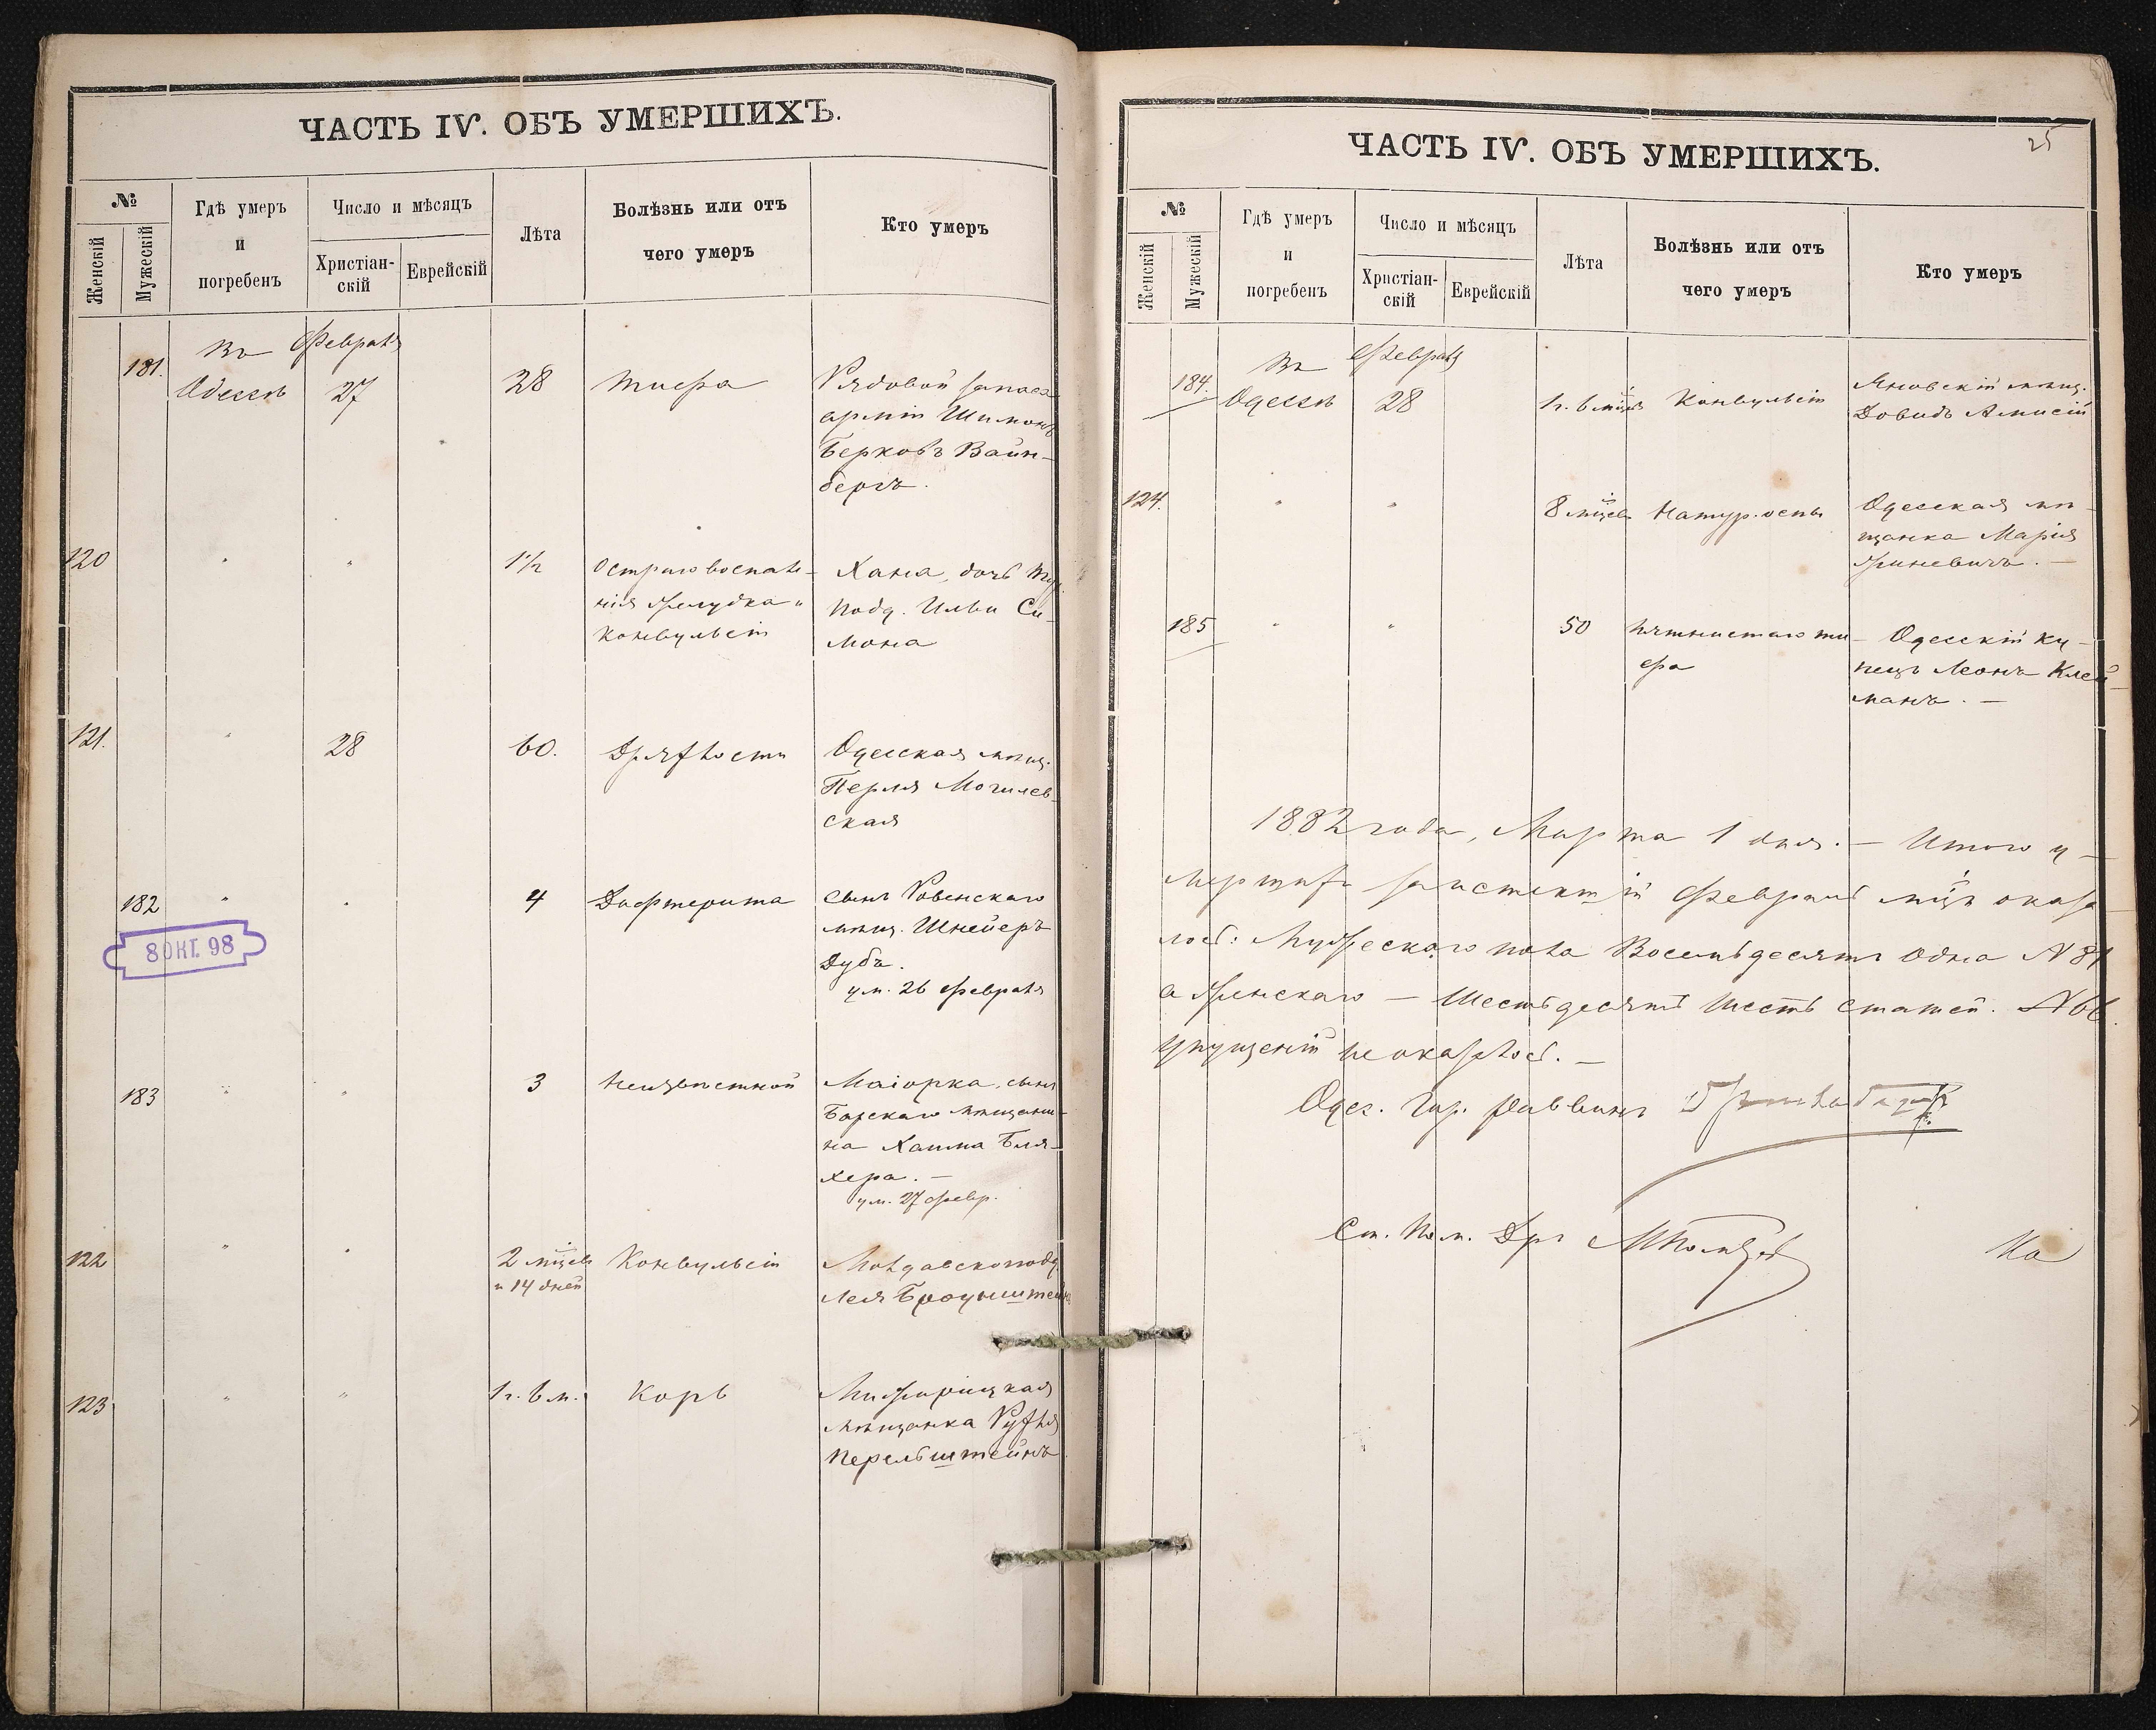 ЧАСТЬ IV. ОБЪ УМЕРШИХЪ.
№
Женскій
Мужескій
Гдѣ умеръ
и
погребенъ
Число и мѣсяцъ
Христіан-
скій
Еврейскій
Лѣта
Болѣзнь или отъ
чего умеръ
Кто умеръ
181.
Въ Февраля
Одессѣ 27
28
Тифа
Рядовой запаса
арміи Шимонъ
Берковъ Вайн-
бергъ.
120 " "
1½
Остраго воспале-
нія желудка и
конвульсіи
Хана, дочь Тур.
подд. Ильи Си-
мона
121. " 28
60.
Дряхлости
Одесская мѣщ.
Перля Могилев-
ская
182 " "
4
Дифтерита
сынъ Ровенскаго
мѣщ. Шнейеръ
Дубъ.
ум. 26 февраля
8 ОКТ. 98
183 " "
3
Неизвѣстной
Маіорка, сынъ
Барскаго мѣщани-
на Хаима Бля-
хера. —
ум. 27 февр.
122 " "
2 мѣсцв
и 14 дней
Конвульсіи
Молдавскоподд.
Лея Броунштейнъ
123 " "
1 г. 6 м.
Корь
Межирицкая
мѣщанка Рухля
Перельштейнъ
ЧАСТЬ IV. ОБЪ УМЕРШИХЪ.
25
№
Женскій
Мужескій
Гдѣ умеръ
и
погребенъ
Число и мѣсяцъ
Христіан-
скій
Еврейскій
Лѣта
Болѣзнь или отъ
чего умеръ
Кто умеръ
184.
Въ Февраля
Одессѣ 28
1 г. 6 мѣсв
Конвульсіи
Яновскій мѣщ.
Довидъ
124. " "
8 мѣсцв
Натур. оспы
Одесская мѣ-
щанка Марія
Гриневичъ. —
185 " "
50
Пятнистаго ти-
фа
Одесскій ку-
пецъ Леонъ Клей-
манъ. —
1882 года, Марта 1 дня. — Итого у-
мершихъ за истекшій Февраль мѣцъ оказа-
лось: Мужескаго пола Восемьдесятъ одна N 81
а Женскаго — Шестьдесятъ шесть статей. N 66.
Упущеній не оказалось. —
Одес. Гор. Раввинъ
Ст. Пом.
На